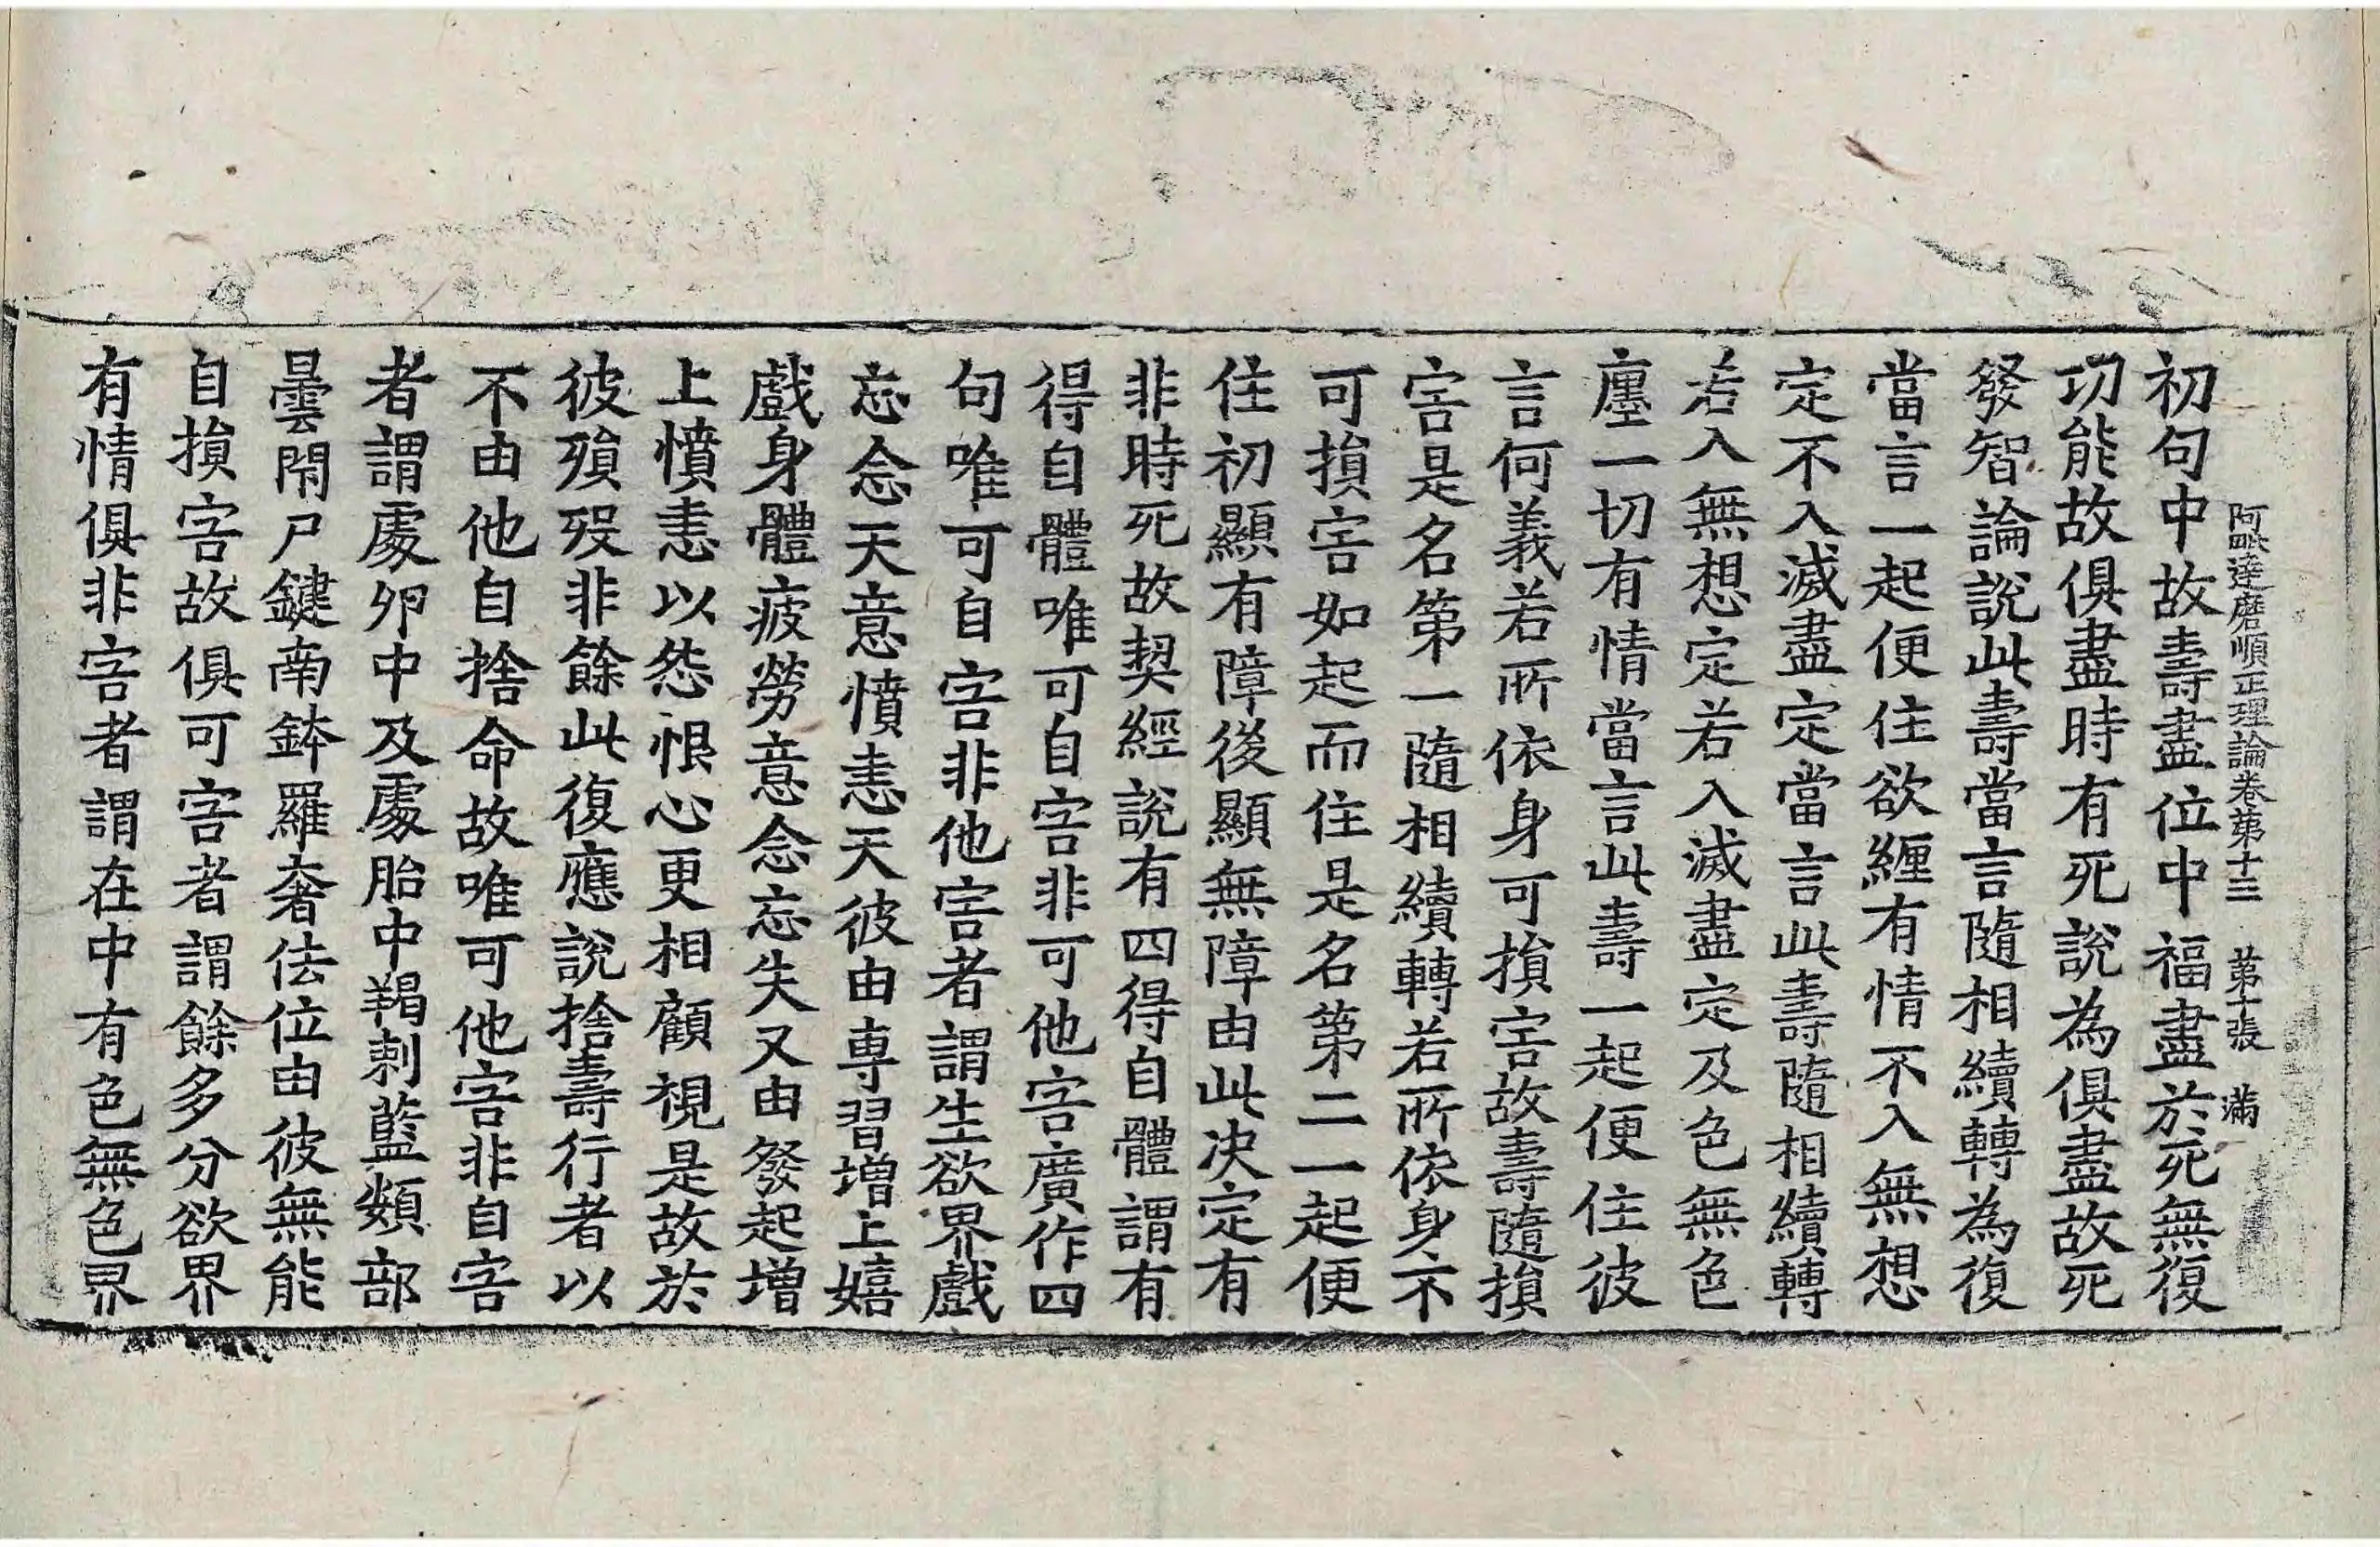 阿毗達磨順正理論卷第十三　第十張　滿
初句中故壽盡位中福盡於死無復
功能故俱盡時有死說為俱盡故死
發智論說此壽當言隨相續轉為復
當言一起便住欲纏有情不入無想
定不入滅盡定當言此壽隨相續轉
若入無想定若入滅盡定及色無色
廛一切有情當言此壽一起便住彼
言何義若所依身可損害故壽隨損
害是名第一隨相續轉若所依身不
可損害如起而住是名第二一起便
住初顯有障後顯無障由此決定有
非時死故契經說有四得自體謂有
得自體唯可自害非可他害廣作四
句唯可自害非他害者謂生欲界戲
忘念天意憤恚天彼由專習增上嬉
戲身體疲勞意念忘失又由發起增
上憤恚以怨恨心更相顧視是故於
彼殞歿非餘此復應說捨壽行者以
不由他自捨命故唯可他害非自害
者謂處卵中及處胎中羯剌藍頞部
曇閇尸鍵南鉢羅奢佉位由彼無能
自損害故俱可害者謂餘多分欲界
有情俱非害者謂在中有色無色界